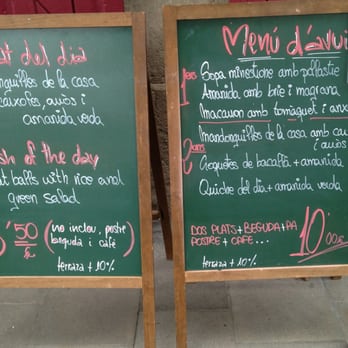 del dia
de la casa
arròs i
amanida verda
of the day
balls with rice and
green salad
'50 € (no inclou, postre
beguda i café)
terraza + 10%
Menú d'avui
1ers
Sopa minestrone amb pollastre
Amanida amb brie i magrana
Macarron amb tomàquet i
2ons
Mandonguilles de la casa amb
i arròs
Croquetes de bacallà + amanida
Quiche del dia + amanida verda
DOS PLATS + BEGUDA + PA
POSTRE + CAFE...
10'00€
terraza + 10%